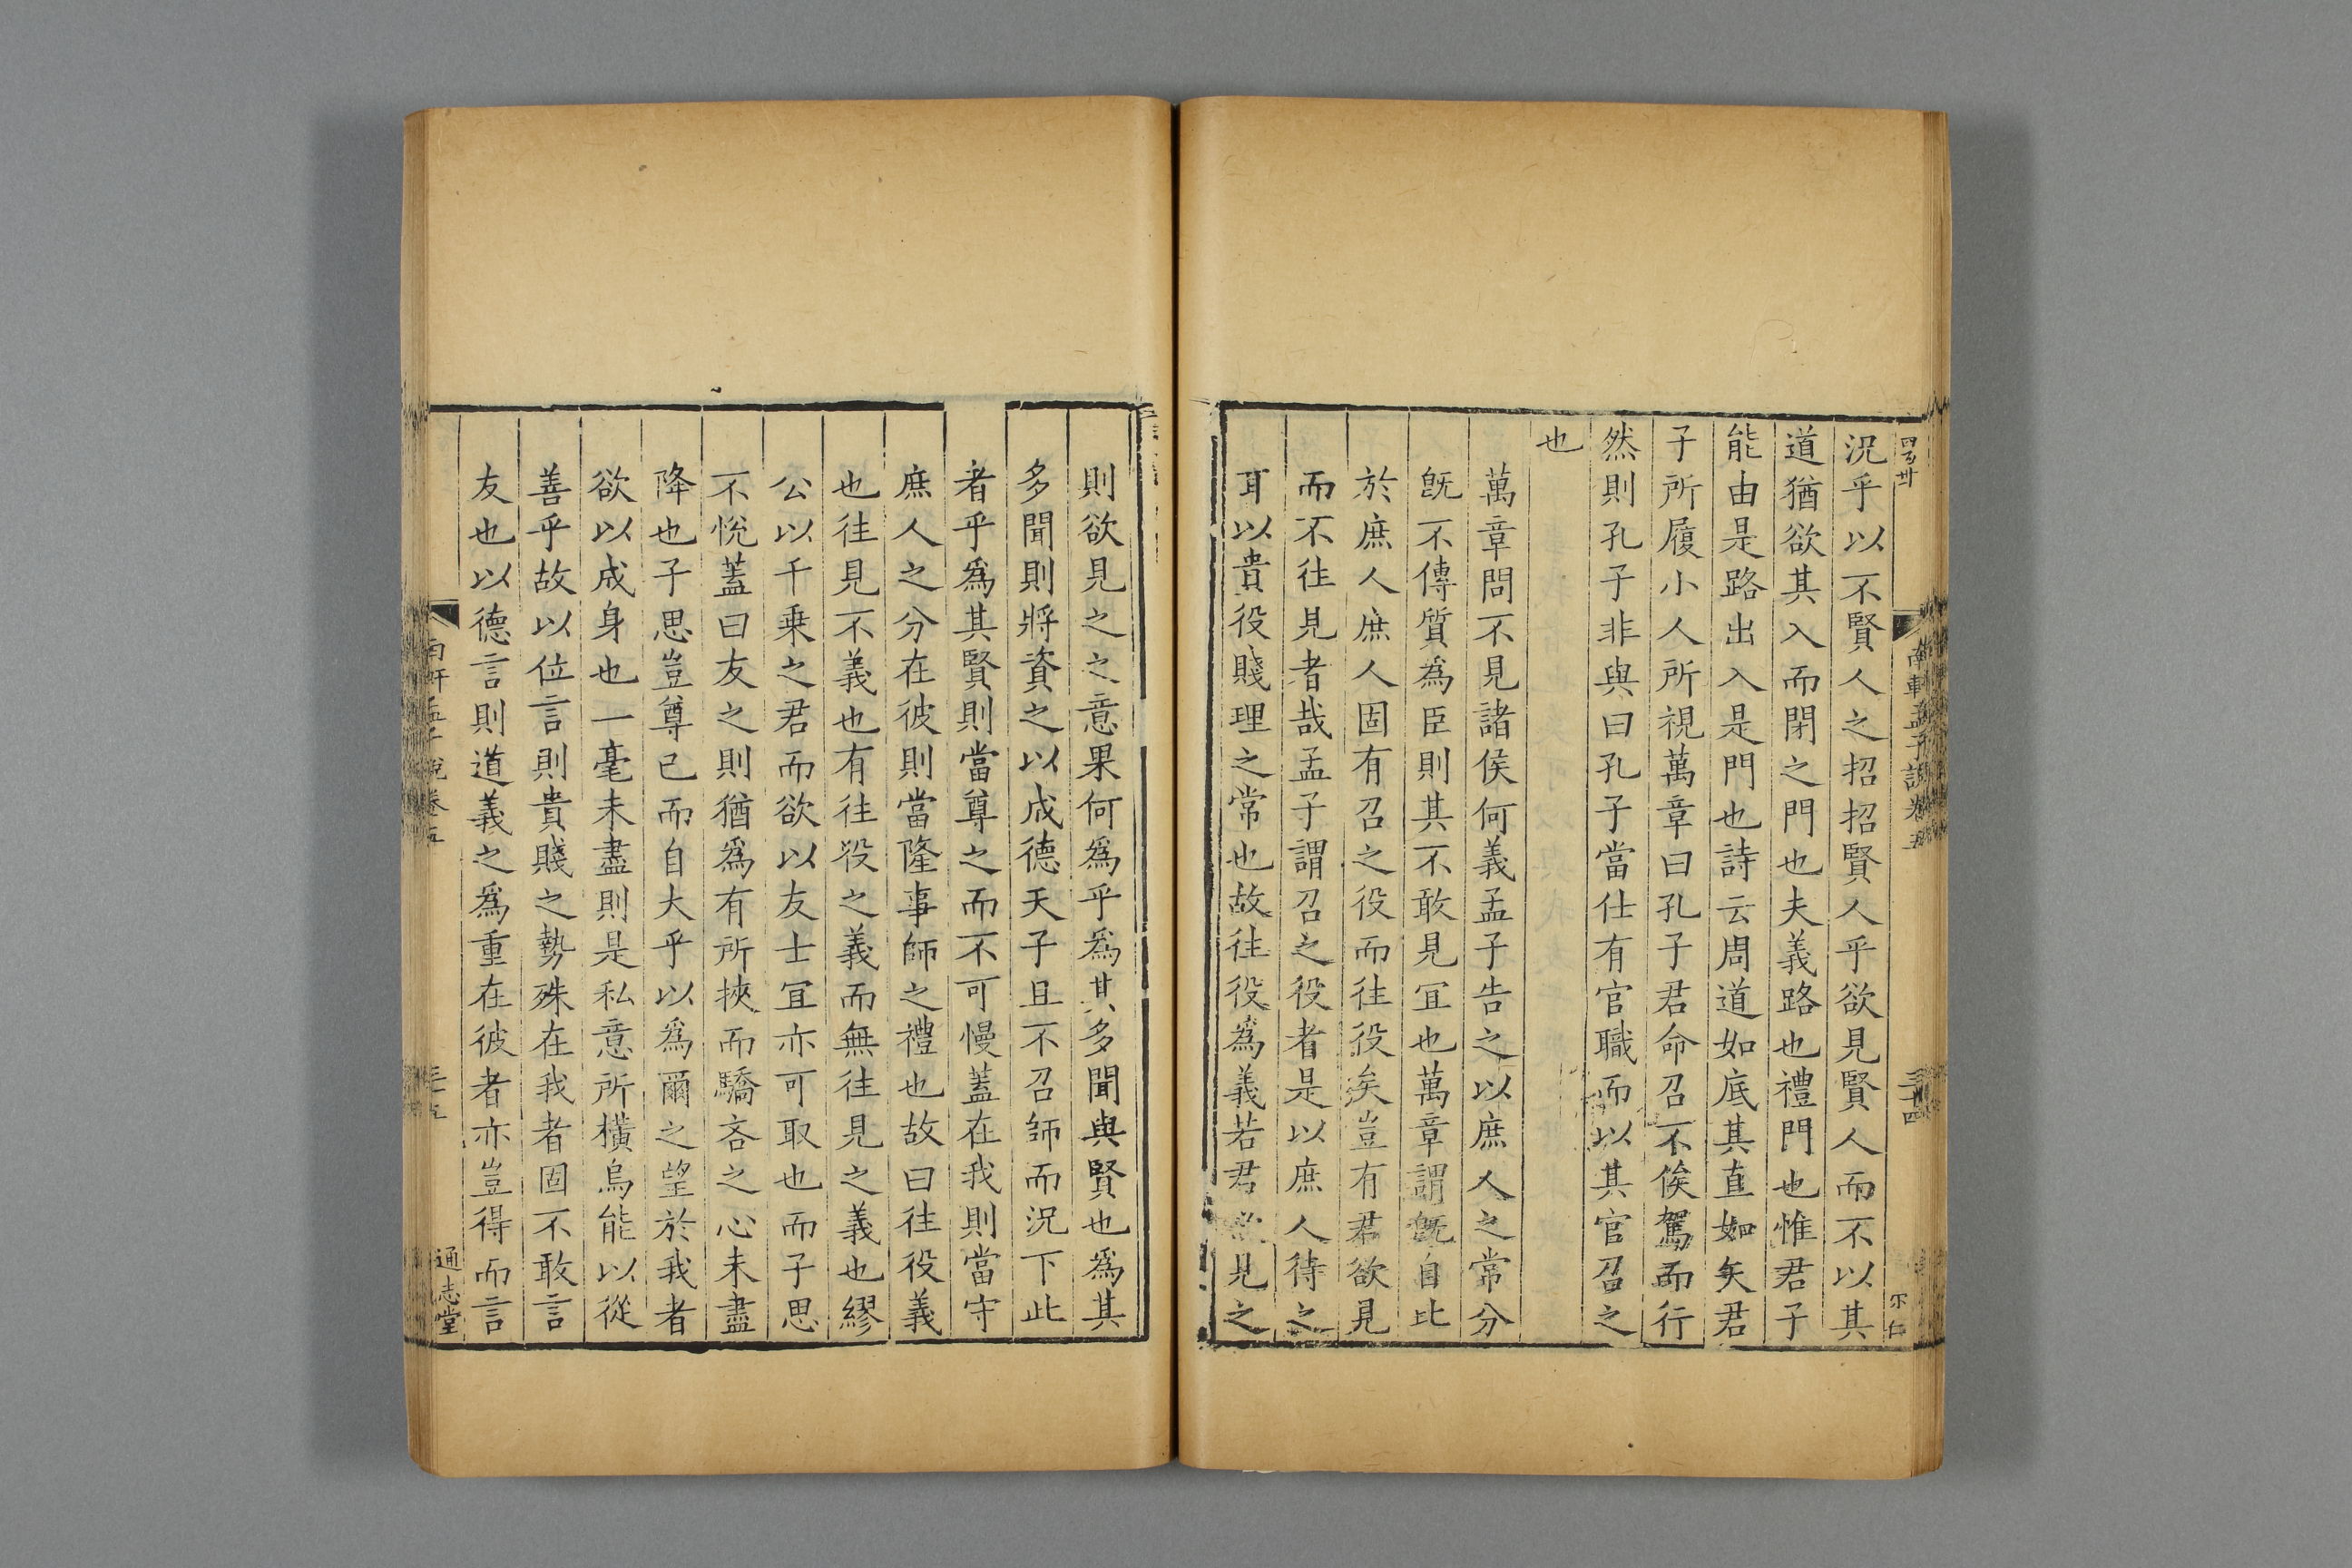 況乎以不賢人之招招賢人乎欲見賢人而不以其
道猶欲其入而閉之門也夫義路也禮門也惟君子
能由是路出入是門也詩云周道如底其直如矢君
子所履小人所視萬章曰孔子君命召不俟駕而行
然則孔子非與曰孔子當仕有官職而以其官召之
也
萬章問不見諸侯何義孟子告之以庶人之常分
旣不傳質爲臣則其不敢見冝也萬章謂旣自比
於庶人庶人固有召之役而往役矣豈有君欲見
而不往見者哉孟子謂召之役者是以庶人待之
耳以貴役賤理之常也故往役爲義若君欲見之
南軒孟子說卷五
三十四
則欲見之之意果何爲乎爲其多聞與賢也爲其
多聞則將資之以成德天子且不召師而況下此
者乎爲其賢則當尊之而不可慢蓋在我則當守
庶人之分在彼則當隆事師之禮也故曰往役義
也往見不義也有往役之義而無往見之義也繆
公以千乗之君而欲以友士冝亦可取也而子思
不悅蓋曰友之則猶爲有所挾而驕吝之心未盡
降也子思豈尊已而自大乎以爲爾之望於我者
欲以成身也一毫未盡則是私意所橫烏能以從
善乎故以位言則貴賤之勢殊在我者固不敢言
友也以德言則道義之爲重在彼者亦豈得而言
通志堂